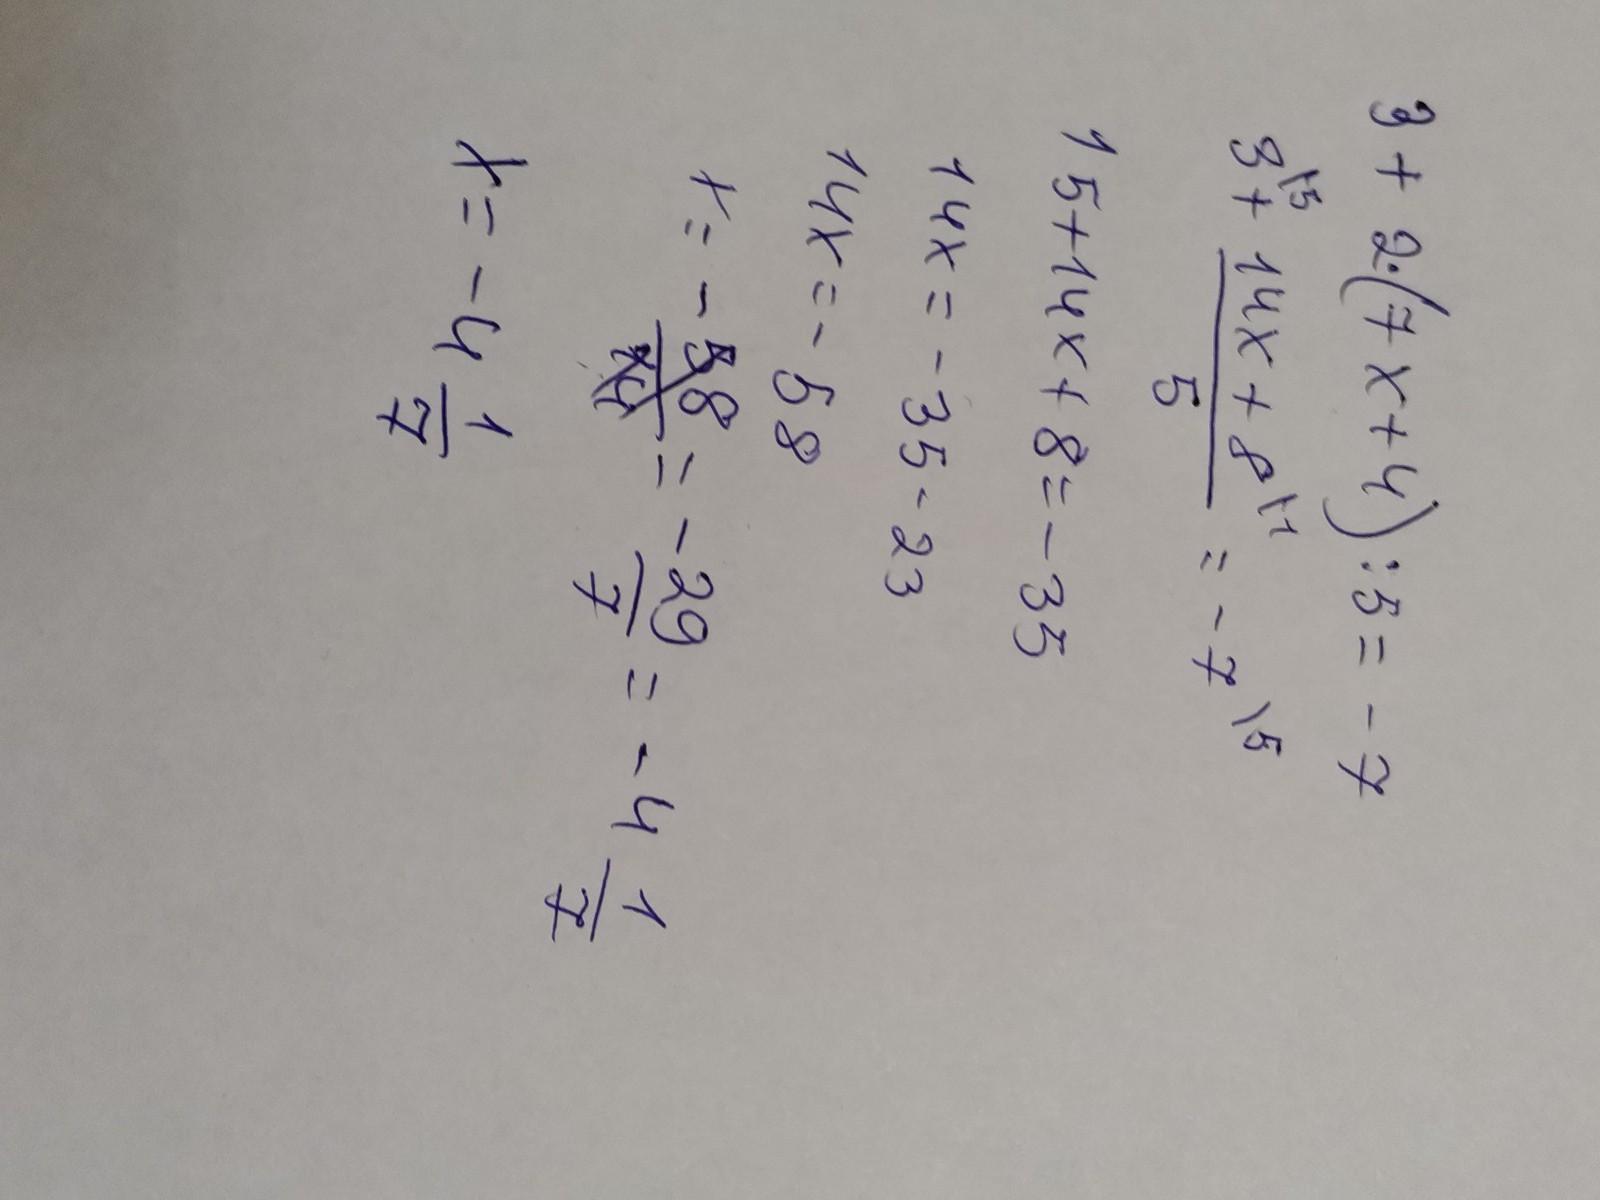 3 + 2·(7x+4):5 = -7
3\5 + 14x + 8\1 / 5 = -7\5
15+14x+8=-35
14x = -35-23
14x = -58
x = -58/14 = -29/7 = -4 1/7
x = -4 1/7